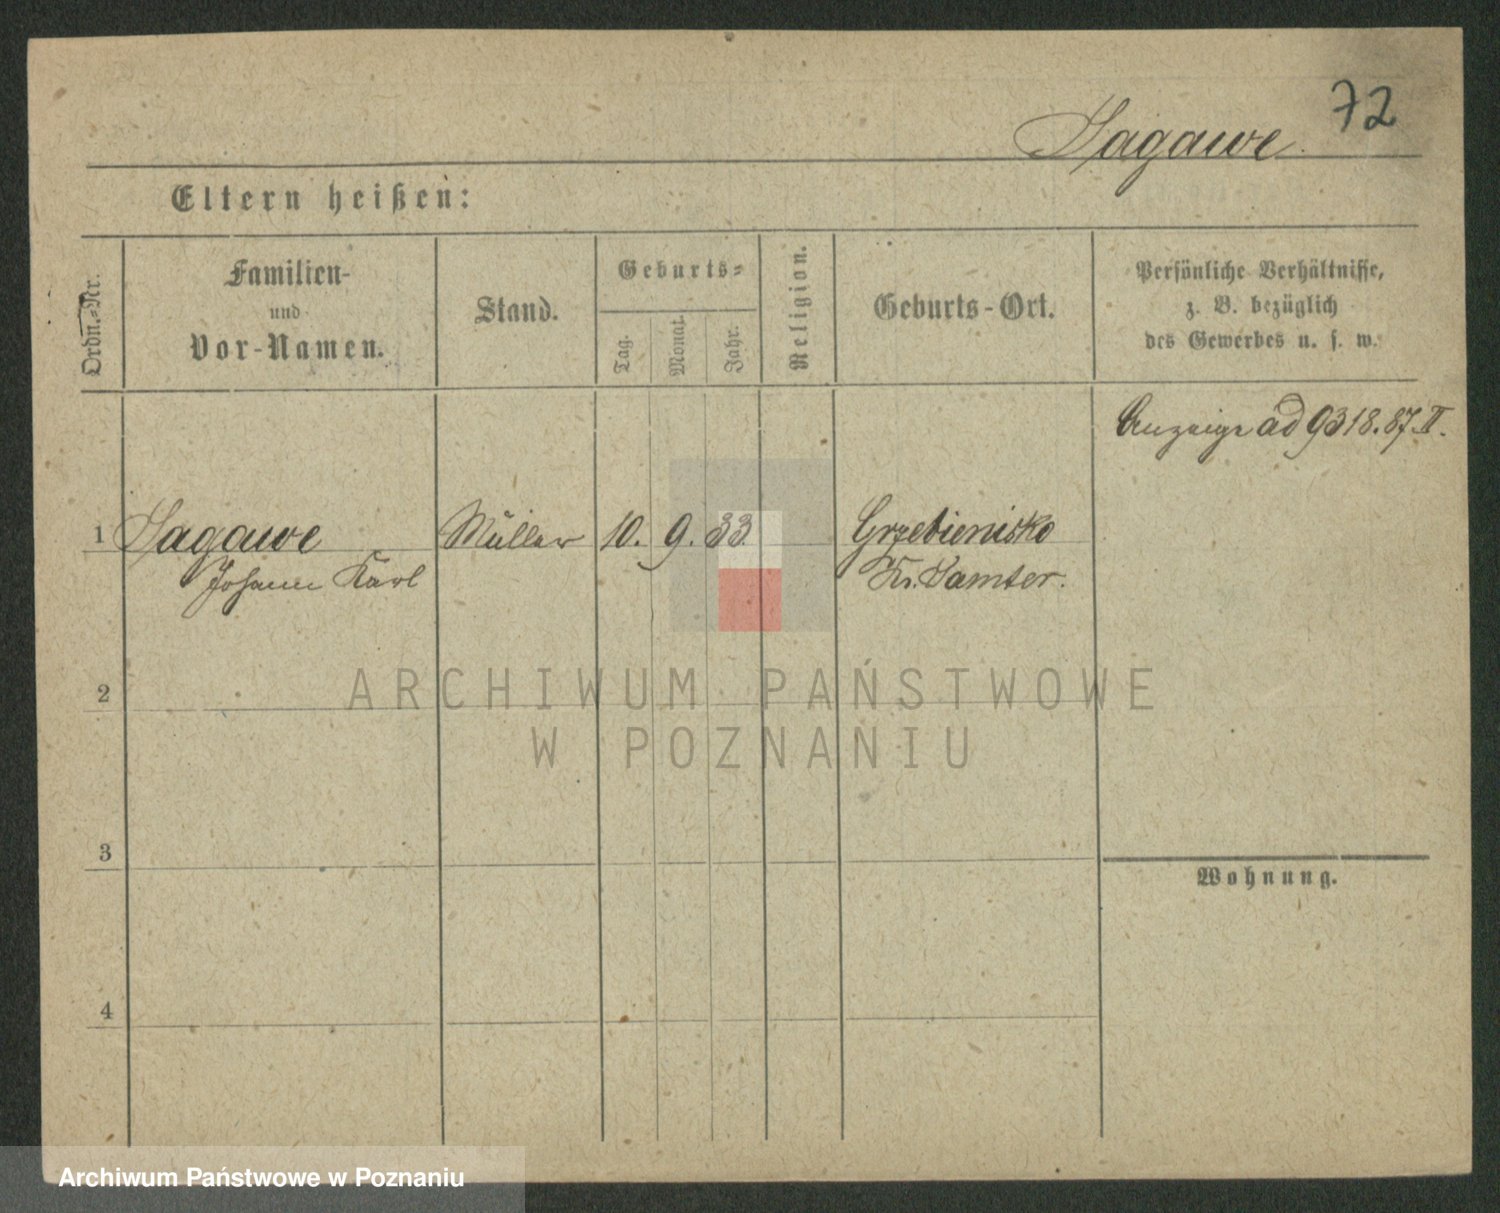 72
Sagawe.
Eltern heißen:
Ordn.-Nr.
Familien-
und
Vor-Namen.
Stand.
Geburts-
Tag.
Monat.
Jahr.
Religion.
Geburts-Ort.
Persönliche Verhältnisse,
z. B. bezüglich
des Gewerbes u. s. w.
Anzeige ad 9318.87.II.
1 Sagawe Müller 10. 9. 33. Grzebienisko
Johann Karl Kr. Samter.
ARCHIWUM PAŃSTWOWE
W POZNANIU
2
3
Wohnung.
4
Archiwum Państwowe w Poznaniu